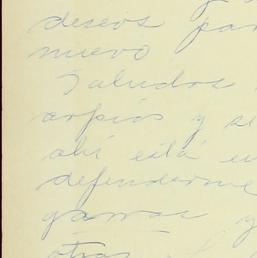 deseos par
nuevo
Saludos
arpías y se
ahí está en
defenderme
garras y
otras